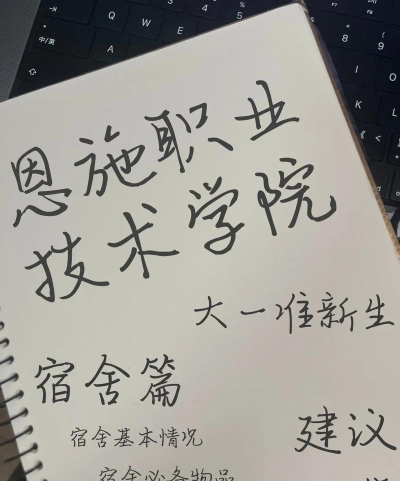 恩施职业
技术学院
大一准新生
宿舍篇
宿舍基本情况
建议
宿舍必备物品